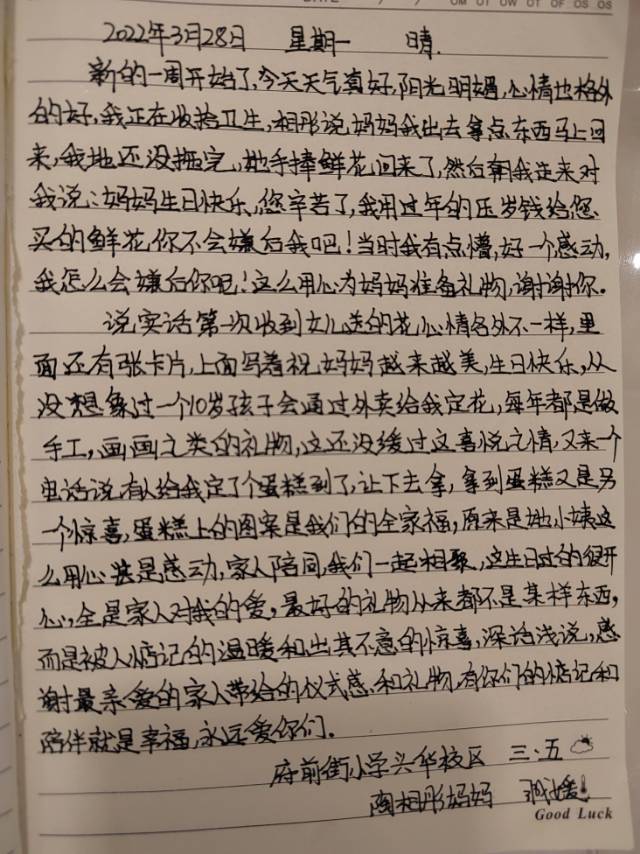 2022年3月28日 星期一 晴.
新的一周开始了,今天天气真好,阳光明媚,心情也格外
的好,我正在收拾卫生,相彤说妈妈我出去拿点东西马上回
来,我地还没拖完,她手捧鲜花回来了,然后朝我走来对
我说:妈妈生日快乐,您辛苦了,我用过年的压岁钱给您
买的鲜花,你不会嫌启我吧!当时我有点懵,好一个感动,
我怎么会嫌启你呢!这么用心为妈妈准备礼物,谢谢你。
说实话第一次收到女儿送的花心情各外不一样,里
面还有张卡片,上面写着祝妈妈越来越美,生日快乐,从
没想象过一个10岁孩子会通过外卖给我定花,每年都是做
手工,画画之类的礼物,这还没缓过这喜悦之情,又来一个
电话说有人给我定了个蛋糕到了,让下去拿,拿到蛋糕又是另
一个惊喜,蛋糕上的图案是我们的全家福,原来是她小姨这
么用心甚是感动,家人陪同,我们一起相聚,这生日过的很开
心,全是家人对我的爱,最好的礼物从来都不是某样东西,
而是被人惦记的温暖和出其不意的惊喜,深话浅说,感
谢最亲爱的家人带给的仪式感和礼物,有你们的惦记和
陪伴就是幸福,永远爱你们。
府前街小学兴华校区 三.五
陶相彤妈妈
Good Luck